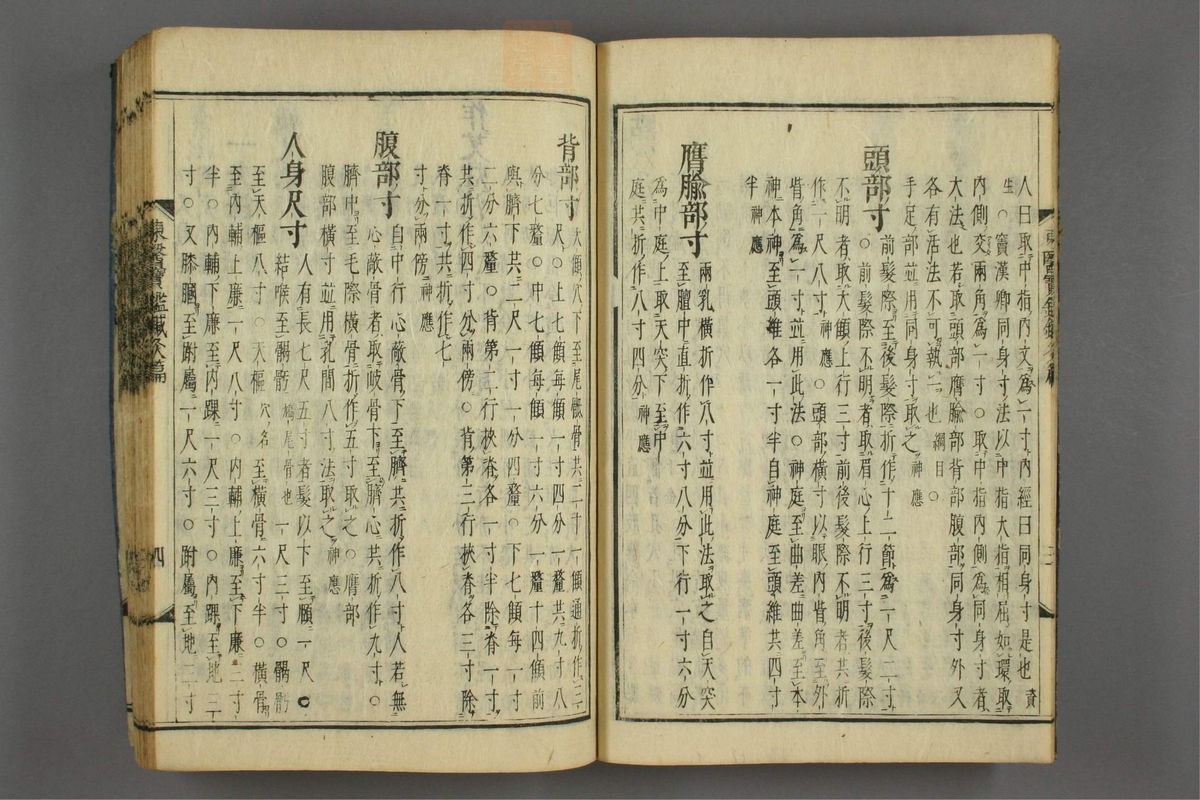 人曰取中指內文爲一寸內經曰同身寸是也資
生○竇漢卿同身寸法以中指大指相屈如環取
內側交兩角爲一寸○取中指內側爲同身寸者
大法也若取頭部膺腧部背部腹部同身寸外又
各有活法不可執一也綱目○
手足部並用同身寸取之神應
頭部寸 前髮際至後髮際折作十二節爲一尺二寸
○前髮際不明者取眉心上行三寸後髮際
不明者取大顀上行三寸前後髮際不明者共折
作一尺八寸神應○頭部橫寸以眼內眥角至外
眥角爲一寸並用此法○神庭至曲差曲差至本
神本神至頭維各一寸半自神庭至頭維共四寸
半神應
膺腧部寸 兩乳橫折作八寸並用此法取之自天突
至膻中直折作六寸八分下行一寸六分
爲中庭上取天突下至中
庭共折作八寸四分神應
東醫寶鑑鍼灸篇
背部寸 大顀穴下至尾骶骨共二十一顀通折作三
尺○上七顀每顀一寸四分一釐共九寸八
分七釐○中七顀每顀一寸六分一釐十四顀前
與臍下共二尺一寸一分四釐○下七顀每一寸
二分六釐○背第二行挾脊各一寸半除脊一寸
共折作四寸分兩傍○背第三行挾脊各三寸除
脊一寸共折作七
寸分兩傍神應
腹部寸 自中行心蔽骨下至臍共折作八寸人若無
心蔽骨者取岐骨下至臍心共折作九寸○
臍中至毛際橫骨折作五寸取之○膺部
腹部橫寸並用乳間八寸法取之神應
人身尺寸 人有長七尺五寸者髮以下至頤一尺○
結喉至𩩲骬鳩尾骨也一尺三寸○𩩲骬
至天樞八寸○天樞穴名至橫骨六寸半○橫骨
至內輔上廉一尺八寸○內輔上廉至下廉三寸
半○內輔下廉至內踝一尺三寸○內踝至地三
寸○又膝膕至跗屬一尺六寸○跗屬至地三寸
東醫寶鑑鍼灸篇
四